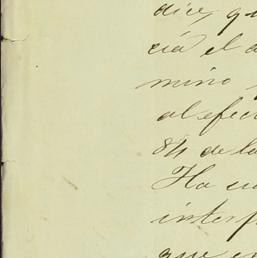 dice, qu
cía el a
mino
al efec
84 de la
Ha cu
interp
que en